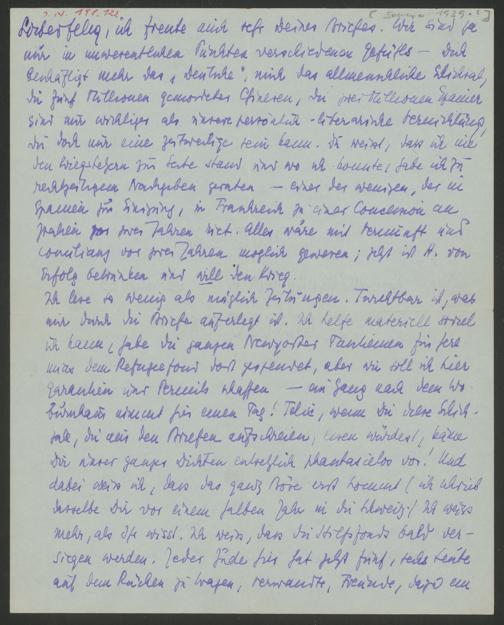 I. N. 198.122.
[Sommer 1939?]
Lieber Felix, ich freute mich sehr deines Briefes. Wir sind ja
nur in unwesentlichen Punkten verschiedenen Gefühls – Dich
beschäftigt mehr das „Deutsche", mich das allmenschliche Schicksal,
die fünf Millionen gemordeter Chinesen, die zwei Millionen Spanier
sind mir wichtiger als unsere persönlich-literarische Vernichtung,
die doch nur eine zeitweilige sein kann. Du weisst, dass ich nie
den Kriegshetzern zur Seite stand und wo ich konnte, habe ich zu
rechtzeitigem Nachgeben geraten – einer der wenigen, der in
Spanien zur Einigung, in Frankreich zu einer Concession an
vor zwei Jahren riet. Alles wäre mit Vernunft und
vor zwei Jahren möglich gewesen; jetzt ist H. von
Erfolg betrunken und will den Krieg.
Ich lese so wenig als möglich Zeitungen. Furchtbar ist, was
mir durch die Briefe auferlegt ist. Ich helfe materiell soviel
ich kann, habe die ganzen Newyorker Tantiemen für
dem Refugeefond dort gespendet, aber wie soll ich hier
Garantien und Permits schaffen – ein Gang nach dem Wo-
burnhaus nimmt für einen Tag! Felix, wenn du diese Schick-
sale, die aus den Briefen aufschreien, lesen würdest, käme
Dir unser ganzes Dichten entsetzlich phantasielos vor! Und
dabei weiss ich, dass das ganz Böse erst kommt (ich schrieb
dasselbe Dir vor einem halben Jahr in die Schweiz) Ich weiss
mehr, als Ihr wisst. Ich weiss, dass die Hilfsfonds bald ver-
siegen werden. Jeder Jude hier hat jetzt fünf, sechs Leute
auf dem Rücken zu tragen, Verwandte, Freunde, dazu ein